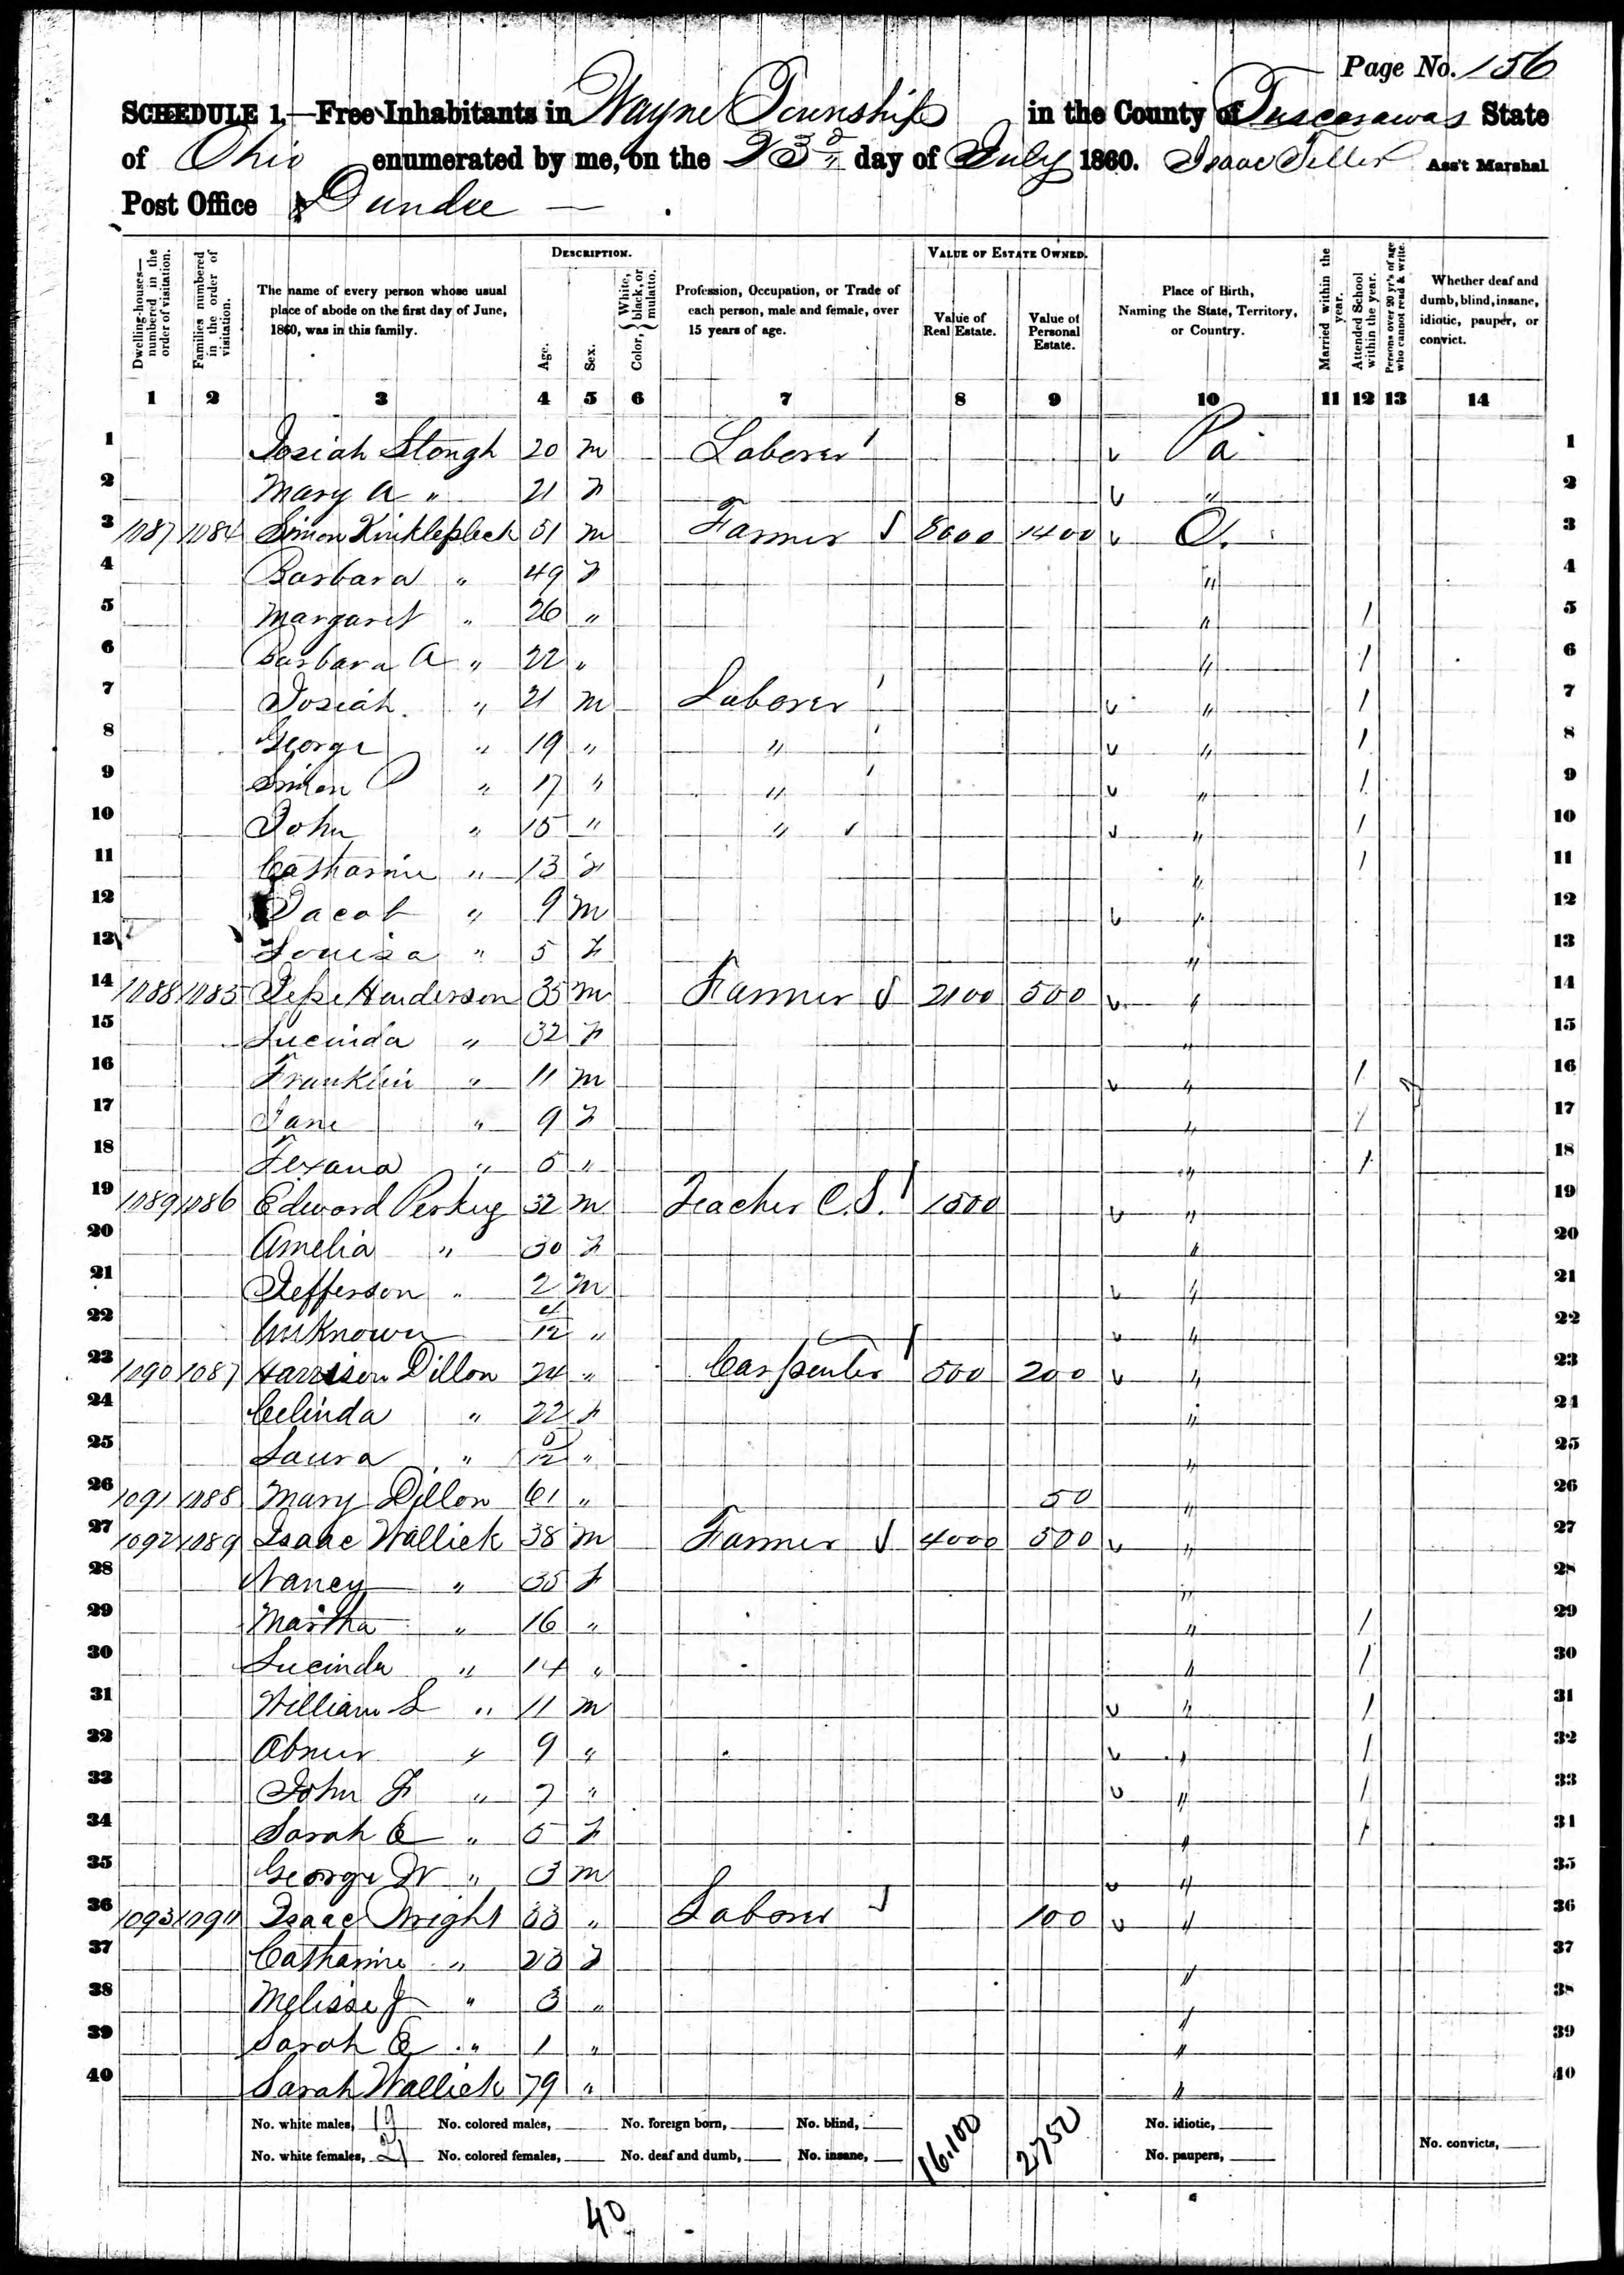 Page No. 156
SCHEDULE 1.—Free Inhabitants in Wayne Township in the County of Tuscarawas State
of Ohio enumerated by me, on the 23d day of July 1860. Isaac Teller Ass't Marshal
Post Office Dundee —
Dwelling-houses—numbered in the order of visitation.
Families numbered in the order of visitation.
The name of every person whose usual place of abode on the first day of June, 1860, was in this family.
DESCRIPTION.
Age.
Sex.
Color, White, black, or mulatto.
Profession, Occupation, or Trade of each person, male and female, over 15 years of age.
VALUE OF ESTATE OWNED.
Value of Real Estate.
Value of Personal Estate.
Place of Birth, Naming the State, Territory, or Country.
Married within the year.
Attended School within the year.
Persons over 20 yr's of age who cannot read & write.
Whether deaf and dumb, blind, insane, idiotic, pauper, or convict.
1 2 3 4 5 6 7 8 9 10 11 12 13 14
1 Josiah Stough 20 m Laborer Pa 1
2 Mary A " 21 f " 2
3 1087 1084 Simon Kinklepleck 51 m Farmer 8000 1400 O. 3
4 Barbara " 49 f " 4
5 Margaret " 26 " " / 5
6 Barbara A " 22 " " / 6
7 Josiah " 21 m Laborer " / 7
8 George " 19 " " " / 8
9 Simon P " 17 " " " / 9
10 John " 15 " " " / 10
11 Catharine " 13 f " / 11
12 Jacob " 9 m " 12
13 Louisa " 5 f " 13
14 1088 1085 Jesse Henderson 35 m Farmer 2100 500 " 14
15 Lucinda " 32 f " 15
16 Franklin " 11 m " / 16
17 Jane " 9 f " / 17
18 Texana " 5 " " / 18
19 1089 1086 Edward Perkey 32 m Teacher C.S. 1500 " 19
20 Amelia " 30 f " 20
21 Jefferson " 2 m " 21
22 Unknown 4/12 " " 22
23 1090 1087 Harrison Dillon 24 " Carpenter 500 200 " 23
24 Celinda " 22 f " 24
25 Laura " 5/12 " " 25
26 1091 1088 Mary Dillon 61 " 50 " 26
27 1092 1089 Isaac Wallick 38 m Farmer 4000 500 " 27
28 Nancy " 35 f " 28
29 Martha " 16 " " / 29
30 Lucinda " 14 " " / 30
31 William S " 11 m " / 31
32 Abner " 9 " " / 32
33 John F " 7 " " / 33
34 Sarah E " 5 f " / 34
35 George W " 3 m " 35
36 1093 1090 Isaac Wright 33 " Laborer 100 " 36
37 Catharine " 23 f " 37
38 Melissa J " 3 " " 38
39 Sarah E " 1 " " 39
40 Sarah Wallick 79 " " 40
No. white males, 19 No. colored males, No. foreign born, No. blind, 16,100 2750 No. idiotic,
No. white females, 21 No. colored females, No. deaf and dumb, No. insane, No. paupers, No. convicts,
40